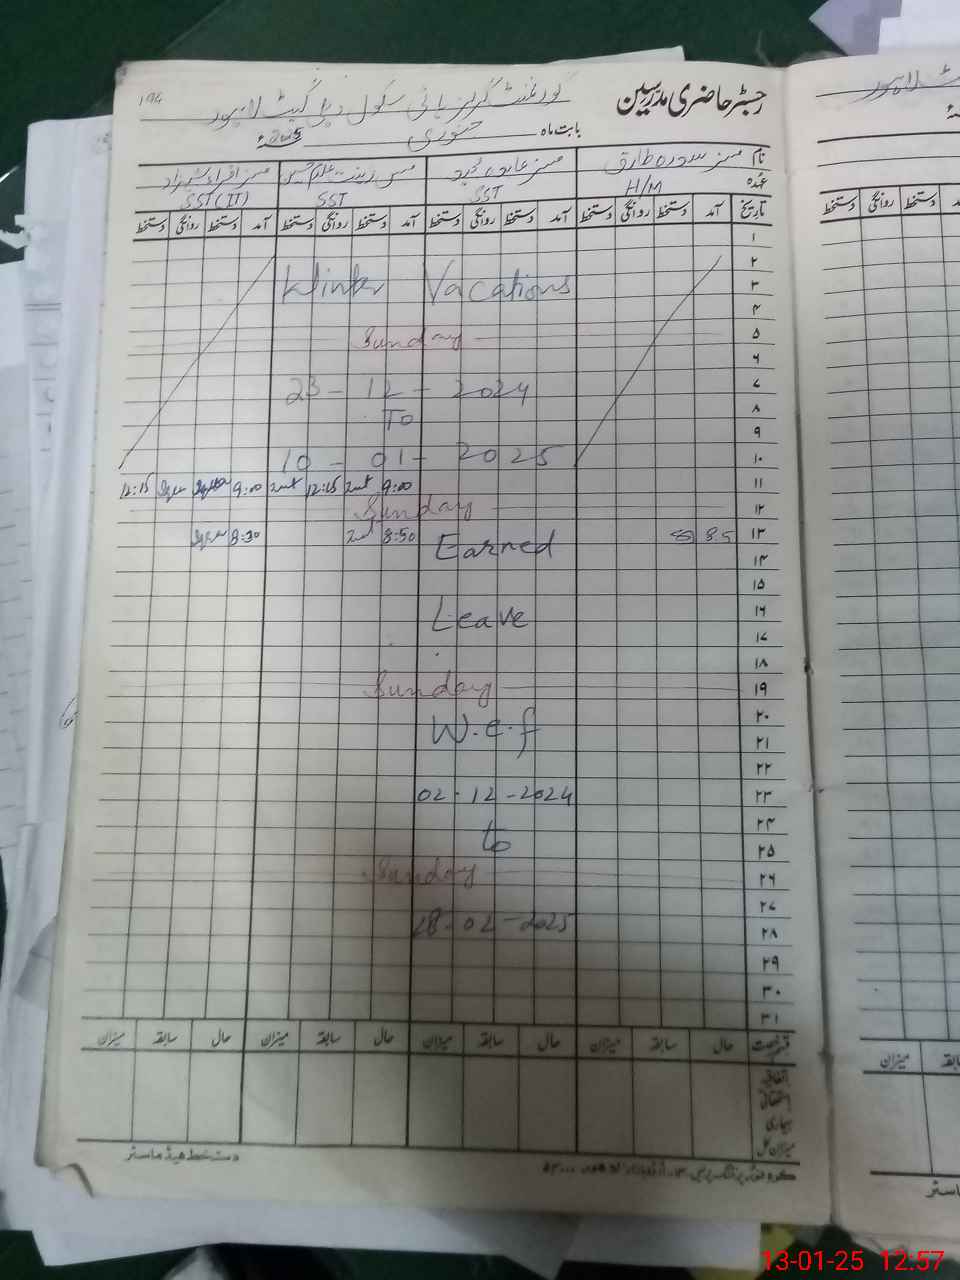 194
گورنمنٹ گرلز ہائی سکول دہلی گیٹ لاہور
رجسٹر حاضری مدرسین
بابت ماہ جنوری 2025ء
نام مسز سدرہ طارق مسز عابدہ مس زینت مسز اقراء شہزاد
عہدہ H/M SST SST SST(IT)
تاریخ آمد دستخط روانگی دستخط آمد دستخط روانگی دستخط آمد دستخط روانگی دستخط آمد دستخط روانگی دستخط
۱
۲
۳ Winter Vacations
۴
۵ Sunday
۶
۷ 23-12-2024
۸ To
۹
۱۰ 10-01-2025
۱۱ 9:00 12:15 9:00 12:15
۱۲ Sunday
۱۳ 8.5 Earned 8:50 8:30
۱۴
۱۵
۱۶ Leave
۱۷
۱۸
۱۹ Sunday
۲۰
۲۱ W.e.f
۲۲
۲۳ 02-12-2024
۲۴
۲۵ to
۲۶ Sunday
۲۷
۲۸ 28-02-2025
۲۹
۳۰
۳۱
قسم رخصت حال سابقہ میزان حال سابقہ میزان حال سابقہ میزان حال سابقہ میزان
اتفاقیہ
استحقاقی
بیماری
میزان کل
دستخط ہیڈ ماسٹر
13-01-25 12:57